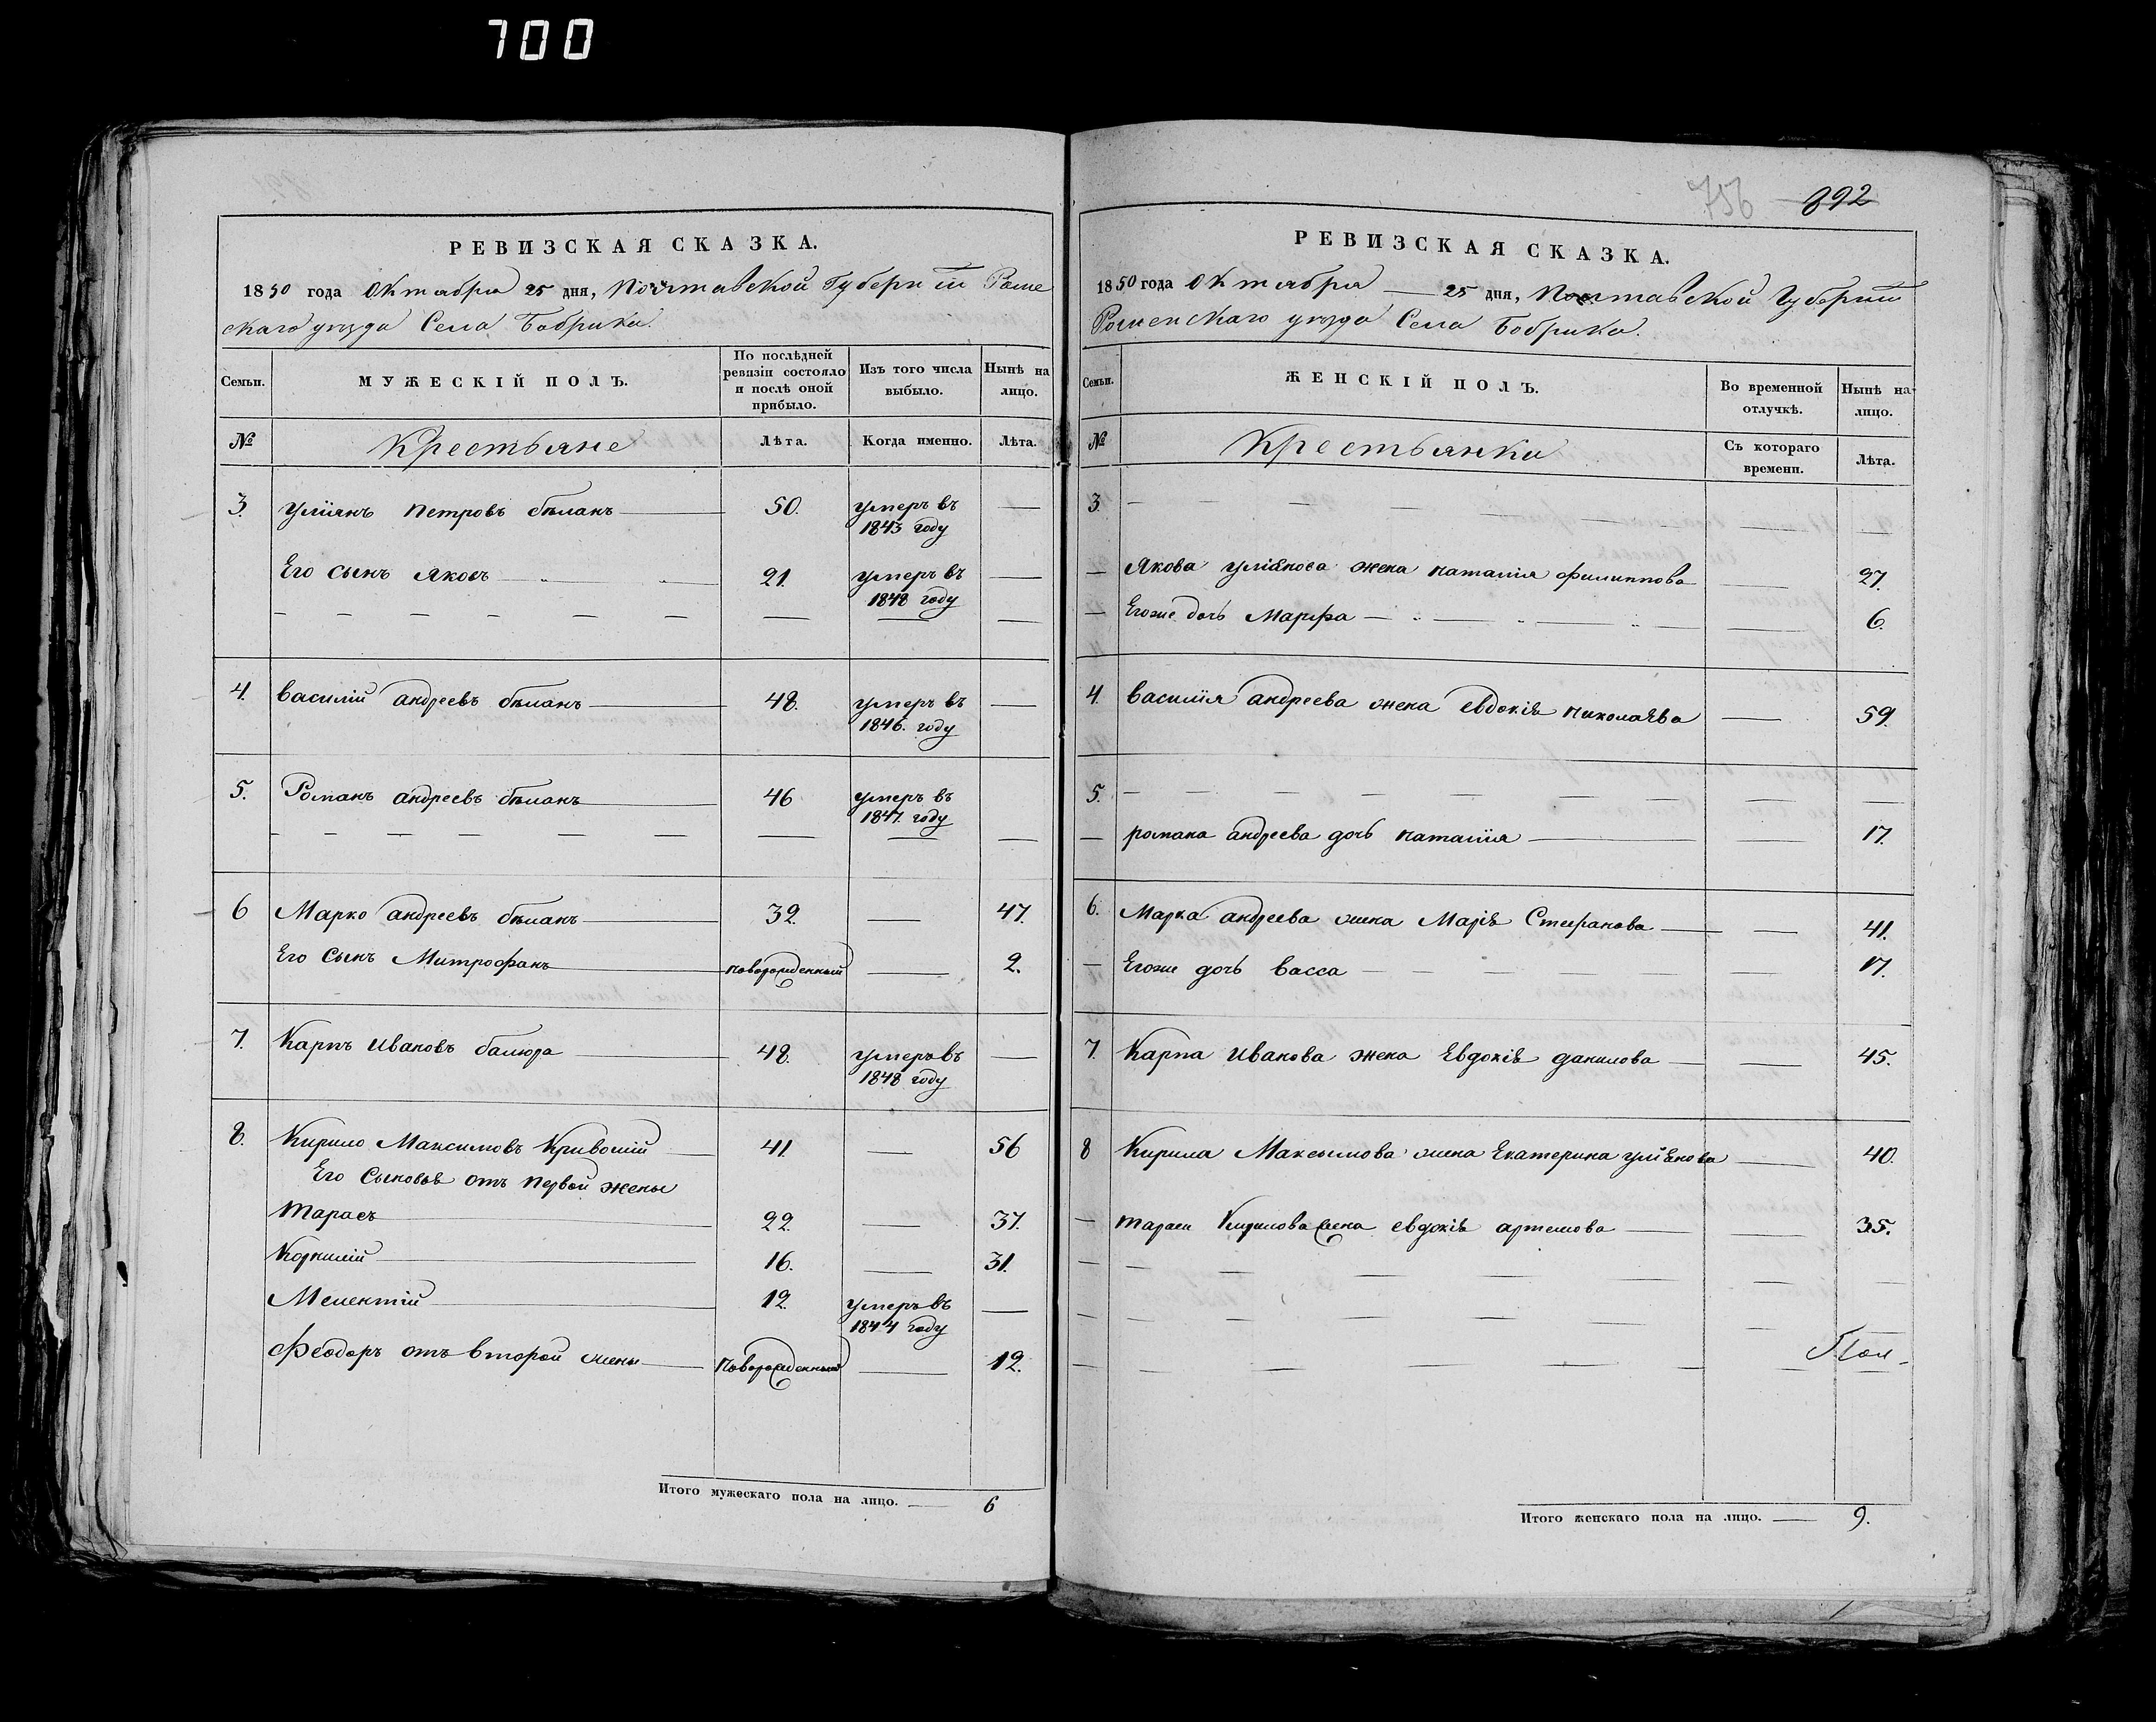 700
РЕВИЗСКАЯ СКАЗКА.
1850 года Октября 25 дня, Полтавской Губерніи Роме
скаго уѣзда Села Бобрика.
Семьи. МУЖЕСКІЙ ПОЛЪ. По послѣдней ревизіи состояло и послѣ оной прибыло. Изъ того числа выбыло. Нынѣ на лицо.
№ Крестьяне Лѣта. Когда именно. Лѣта.
3. Уліянъ Петровъ бѣланъ 50. умеръ въ 1843 году —
Его сынъ Яковъ 21. умеръ въ 1848 году —
4. Василій андреевъ бѣланъ 48. умеръ въ 1846. году —
5. Романъ андреевъ бѣланъ 46 умеръ въ 1847. году —
6 Марко андреевъ бѣланъ 32. — 47.
Его Сынъ Митрофанъ новорожденный — 2.
7. Карпъ Ивановъ балюра 48. умеръ въ 1848 году —
8. Кирило Максимовъ Кривошій 41. — 56
Его Сыновья отъ первой жены
Тарасъ 22. — 37.
Корнилій 16. — 31.
Мелентій 12. умеръ въ 1844 году —
Феодоръ отъ второй жены новорожденный — 12.
Итого мужескаго пола на лицо. — 6
756 892
РЕВИЗСКАЯ СКАЗКА.
1850 года Октября — 25 дня, Полтавской Губерніи
Роменскаго уѣзда Села Бобрика.
Семьи. ЖЕНСКІЙ ПОЛЪ. Во временной отлучкѣ. Нынѣ на-лицо.
№ Крестьянки Съ котораго времени. Лѣта.
3. — — —
— Якова уліянова жена наталія филиппова — 27.
— Егоже дочь Марфа — 6.
4. Василія андреева жена евдокія николаева — 59.
5. — — —
— романа андреева дочь наталія — 17.
6. Марка андреева жена Марія Стефанова — 41.
— Егоже дочь васса 17.
7. Карпа Иванова жена Евдокія данилова — 45.
8 Кирила Максымова жена Екатерина уліянова — 40.
— Тараса Кирилова жена евдокія артемова — 35.
Пол-
Итого женскаго пола на лицо. — 9.